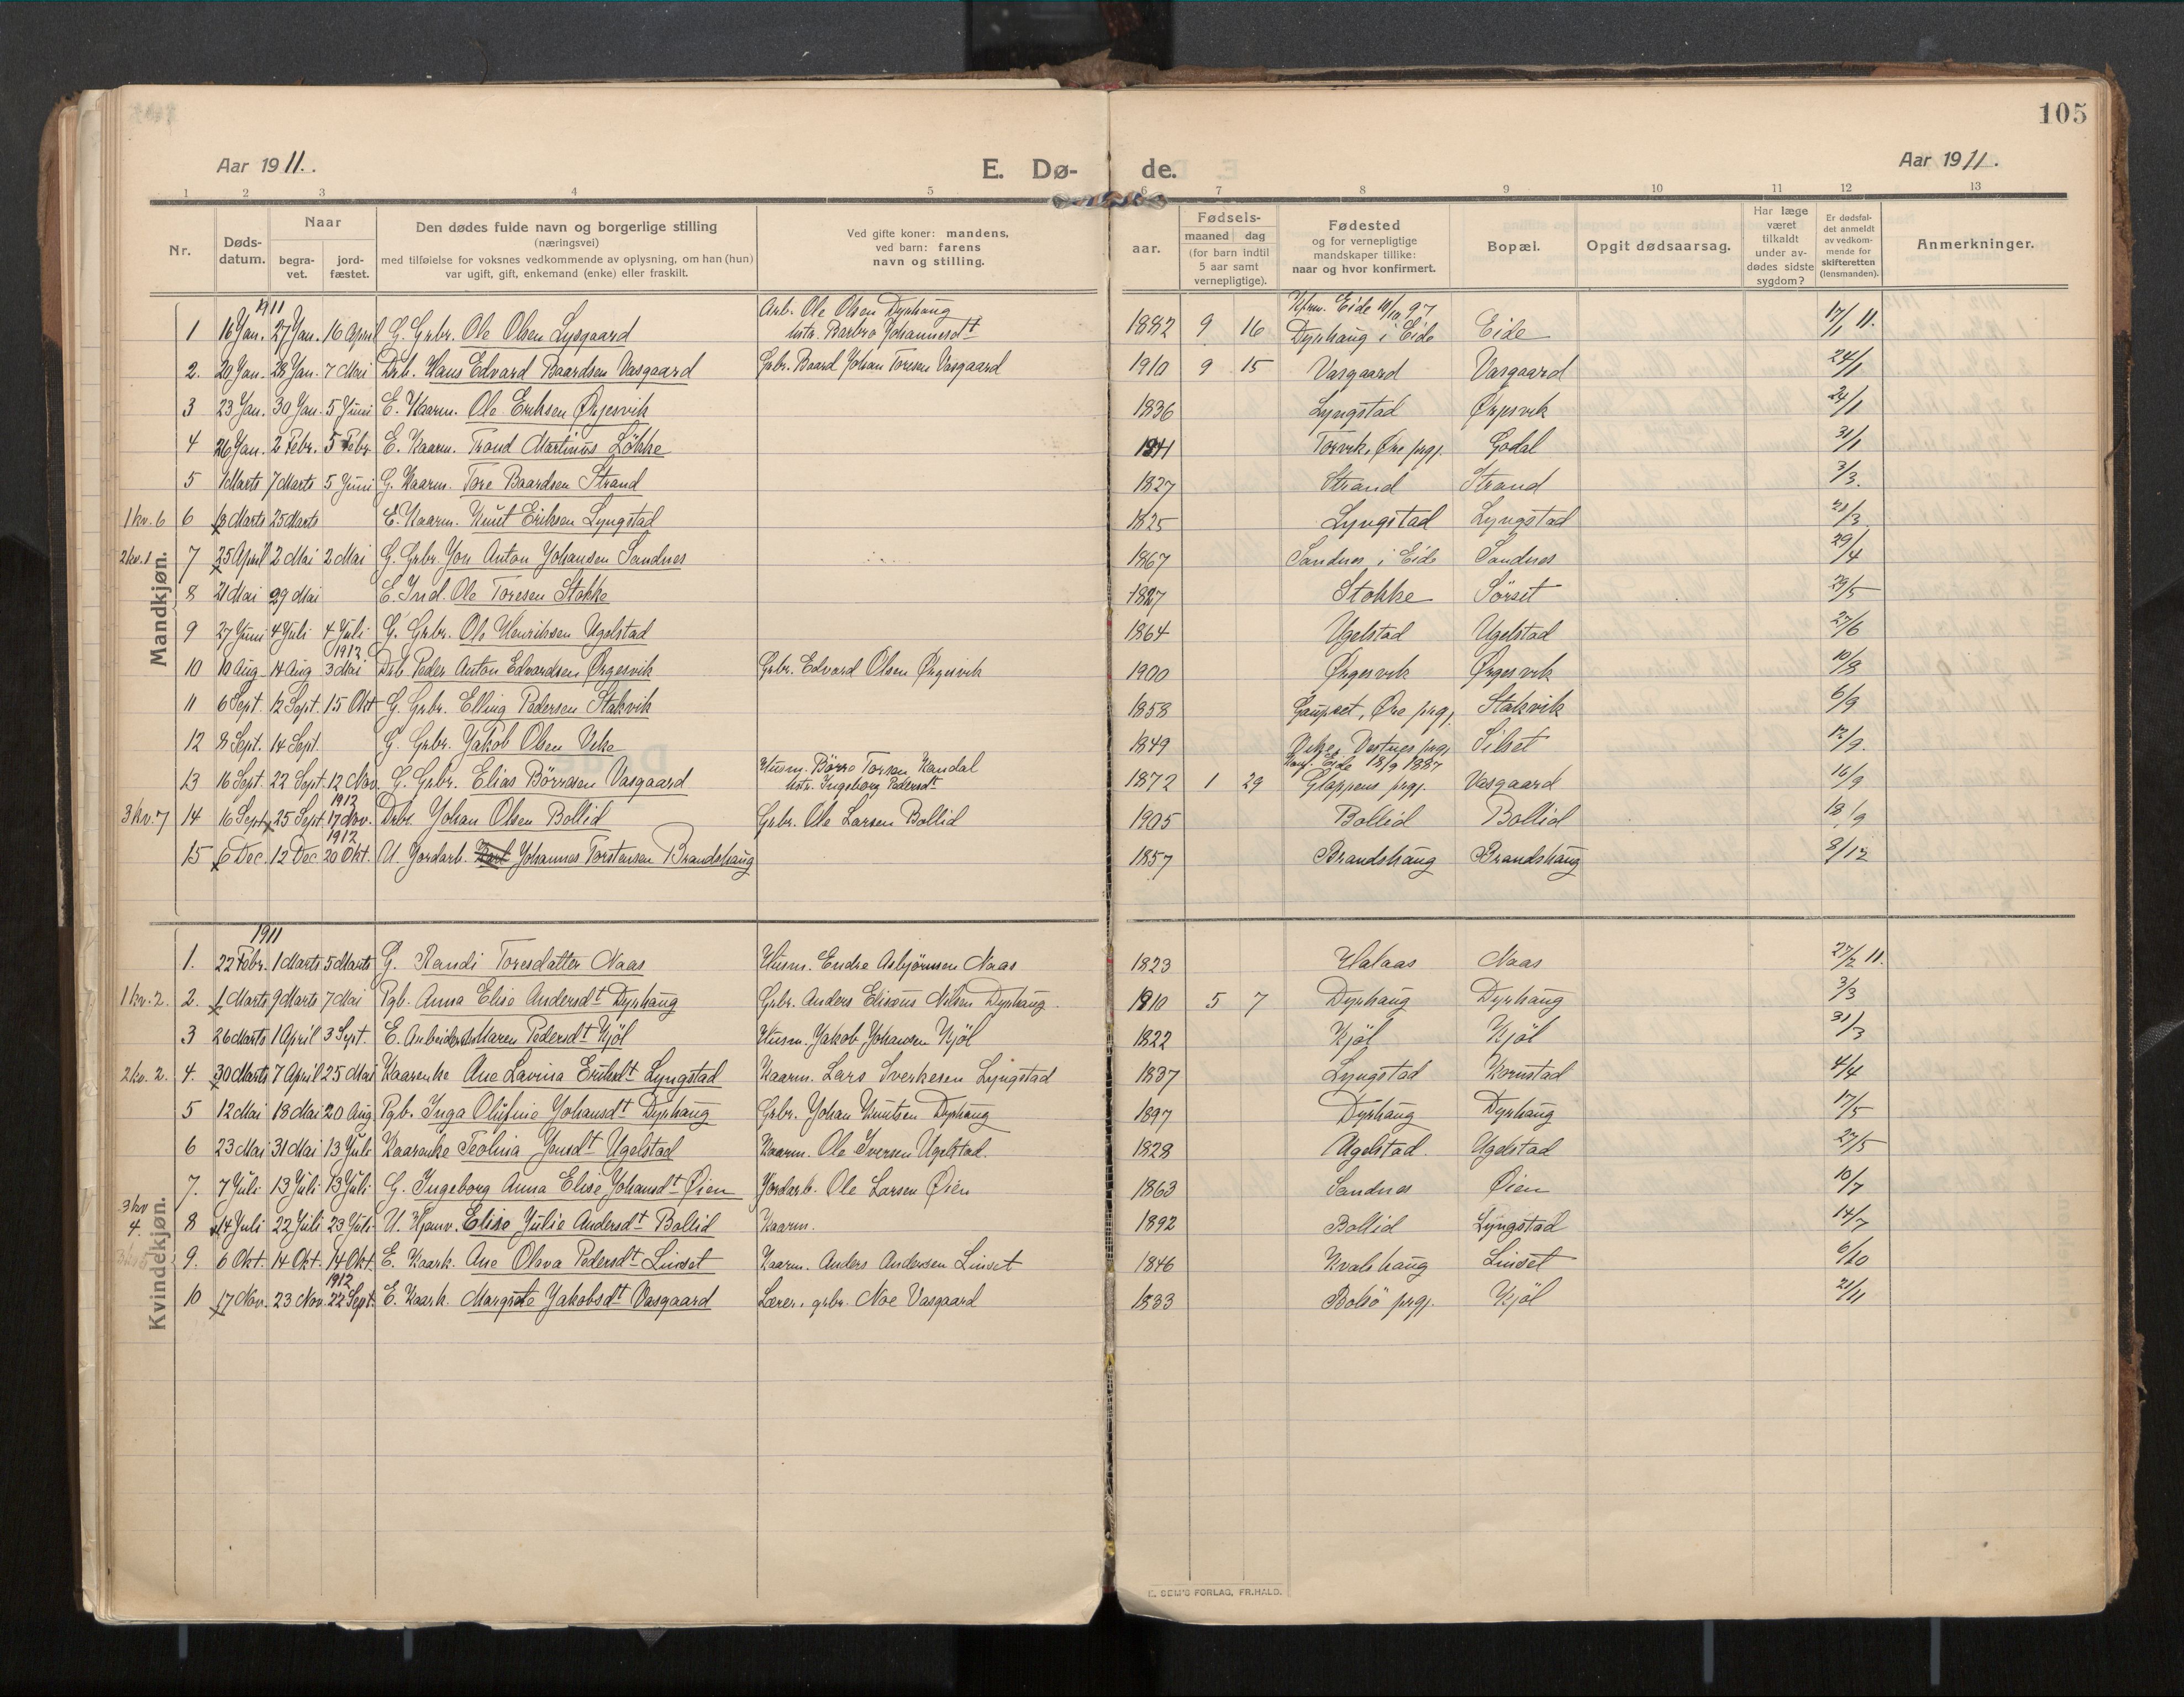 105
Aar 1911.
E. Dø-
de.
Aar 1911.
1 2 3 4 5 6 7 8 9 10 11 12 13
Nr.
Døds-
datum.
Naar
begra-
vet.
jord-
fæstet.
Den dødes fulde navn og borgerlige stilling
(næringsvei)
med tilføielse for voksnes vedkommende av oplysning, om han (hun)
var ugift, gift, enkemand (enke) eller fraskilt.
Ved gifte koner: mandens,
ved barn: farens
navn og stilling.
aar.
Fødsels-
maaned dag
(for barn indtil
5 aar samt
vernepligtige).
Fødested
og for vernepligtige
mandskaper tillike:
naar og hvor konfirmert.
Bopæl.
Opgit dødsaarsag.
Har læge
været
tilkaldt
under av-
dødes sidste
sygdom?
Er dødsfal-
det anmeldt
av vedkom-
mende for
skifteretten
(lensmanden).
Anmerkninger.
Mandkjøn.
1911 Arb. Ole Olsen Dyrhaug Eide 97
1 16 Jan. 27 Jan. 16 April G. Grbr. Ole Olsen Lysgaard Hstr. Barbro Johannesdt 1882 9 16 Dyrhaug i Eide Eide 17/1 11.
2. 20 Jan. 28 Jan. 7 Mai Drb. Hans Edvard Baardsen Vasgaard Grbr. Baard Johan Toresen Vasgaard 1910 9 15 Vasgaard Vasgaard 24/1
3 23 Jan. 30 Jan. 5 Juni E. Kaarm. Ole Eriksen Ørjesvik 1836 Lyngstad Ørjesvik 24/1
4 26 Jan. 2 Febr. 5 Febr. E. Kaarm. Trond Martinus Løkke 1841 Torvik, Øre prgj. Godal 31/1
5 1 Marts 7 Marts 5 Juni G. Kaarm. Tore Baardsen Strand 1827 Strand Strand 3/3.
1 kv. 6 6 18 Marts 25 Marts E. Kaarm. Knut Eriksen Lyngstad 1825 Lyngstad Lyngstad 21/3
2 kv. 1 7 25 April 2 Mai 2 Mai G. Grbr. Jon Anton Johansen Sandnes 1867 Sandnes i Eide Sandnes 29/4
8 21 Mai 29 Mai E. Ind. Ole Toresen Stokke 1827 Stokke Sørset 23/5
9 27 Juni 4 Juli 4 Juli G. Grbr. Ole Henriksen Ugelstad 1864 Ugelstad Ugelstad 27/6
1912
10 10 Aug 14 Aug 3 Mai Drb. Peder Anton Edvardsen Ørgesvik Grbr. Edvard Olsen Ørgesvik 1900 Ørgesvik Ørgesvik 10/8
11 6 Sept. 12 Sept. 15 Okt G. Grbr. Elling Pedersen Stakvik 1858 Gaupset, Øre prgj. Stakvik 6/9
12 8 Sept. 14 Sept. G. Grbr. Jakob Olsen Vike 1849 Vike, Vestnes prgj. Silset 12/9.
Husm. Børre Torsen Kandal Konf. Eide 18/9 1887
13 16 Sept. 22 Sept. 12 Nov G. Grbr. Elias Børresen Vasgaard Hstr. Ingeborg Pedersdt 1872 1 29 prgj. Vasgaard 16/9
1912
3 kv. 7 14 16 Sept. 25 Sept. 17 Nov. Drbr. Johan Olsen Bollid Grbr. Ole Larsen Bollid 1905 Bollid Bollid 18/9
1912
15 6 Dec. 12 Dec. 20 Okt. U. Jordarb. Johannes Torstensen Brandshaug 1857 Brandshaug Brandshaug 8/12
Kvindekjøn.
1911
1. 22 Febr. 1 Marts 5 Marts G. Randi Toresdatter Naas Husm. Endre Asbjørnsen Naas 1823 Halaas Naas 27/2 11.
1 kv. 2. 2. 1 Marts 9 Marts 7 Mai Pgb. Anna Elise Andersdt Dyrhaug Grbr. Anders Elisæus Nilsen Dyrhaug 1910 5 7 Dyrhaug Dyrhaug 3/3
3 26 Marts 1 April 3 Sept. E. Arbeiderske Maren Pedersdt Kjøl Husm. Jakob Johansen Kjøl 1822 Kjøl Kjøl 31/3
2 kv. 2. 4. 30 Marts 7 April 25 Mai Kaarenke Ane Lavina Eriksdt Lyngstad Kaarm. Lars Sverkesen Lyngstad 1837 Lyngstad Kornstad 4/4
5 12 Mai 18 Mai 20 Aug Pgb. Inga Olufine Johansdt Dyrhaug Grbr. Johan Knutsen Dyrhaug 1897 Dyrhaug Dyrhaug 17/5
6 23 Mai 31 Mai 13 Juli Kaarenke Teolina Jensdt Ugelstad Kaarm. Ole Iversen Ugelstad. 1828 Ugelstad Ugelstad 27/5
7. 7 Juli 13 Juli 13 Juli G. Ingeborg Anna Elise Johansdt Øien Jordarb. Ole Larsen Øien 1863 Sandnes Øien 10/7
3 kv 4. 8 14 Juli 22 Juli 23 Juli U. Elise Julie Andersdt Bollid Kaarm. 1892 Bollid Lyngstad 14/7
9. 6 Okt. 14 Okt. 14 Okt. E. Kaark. Ane Olava Pedersdt Linset Kaarm. Anders Andersen Linset 1846 Kvalshaug Linset 6/10
1912
10 17 Nov. 23 Nov. 22 Sept. E. Kaark. Margrete Jakobsdt Vasgaard Lærer, grbr. Noe Vasgaard 1833 Bolsø prgj. Kjøl 21/11
E. SEM'S FORLAG, FR.HALD.